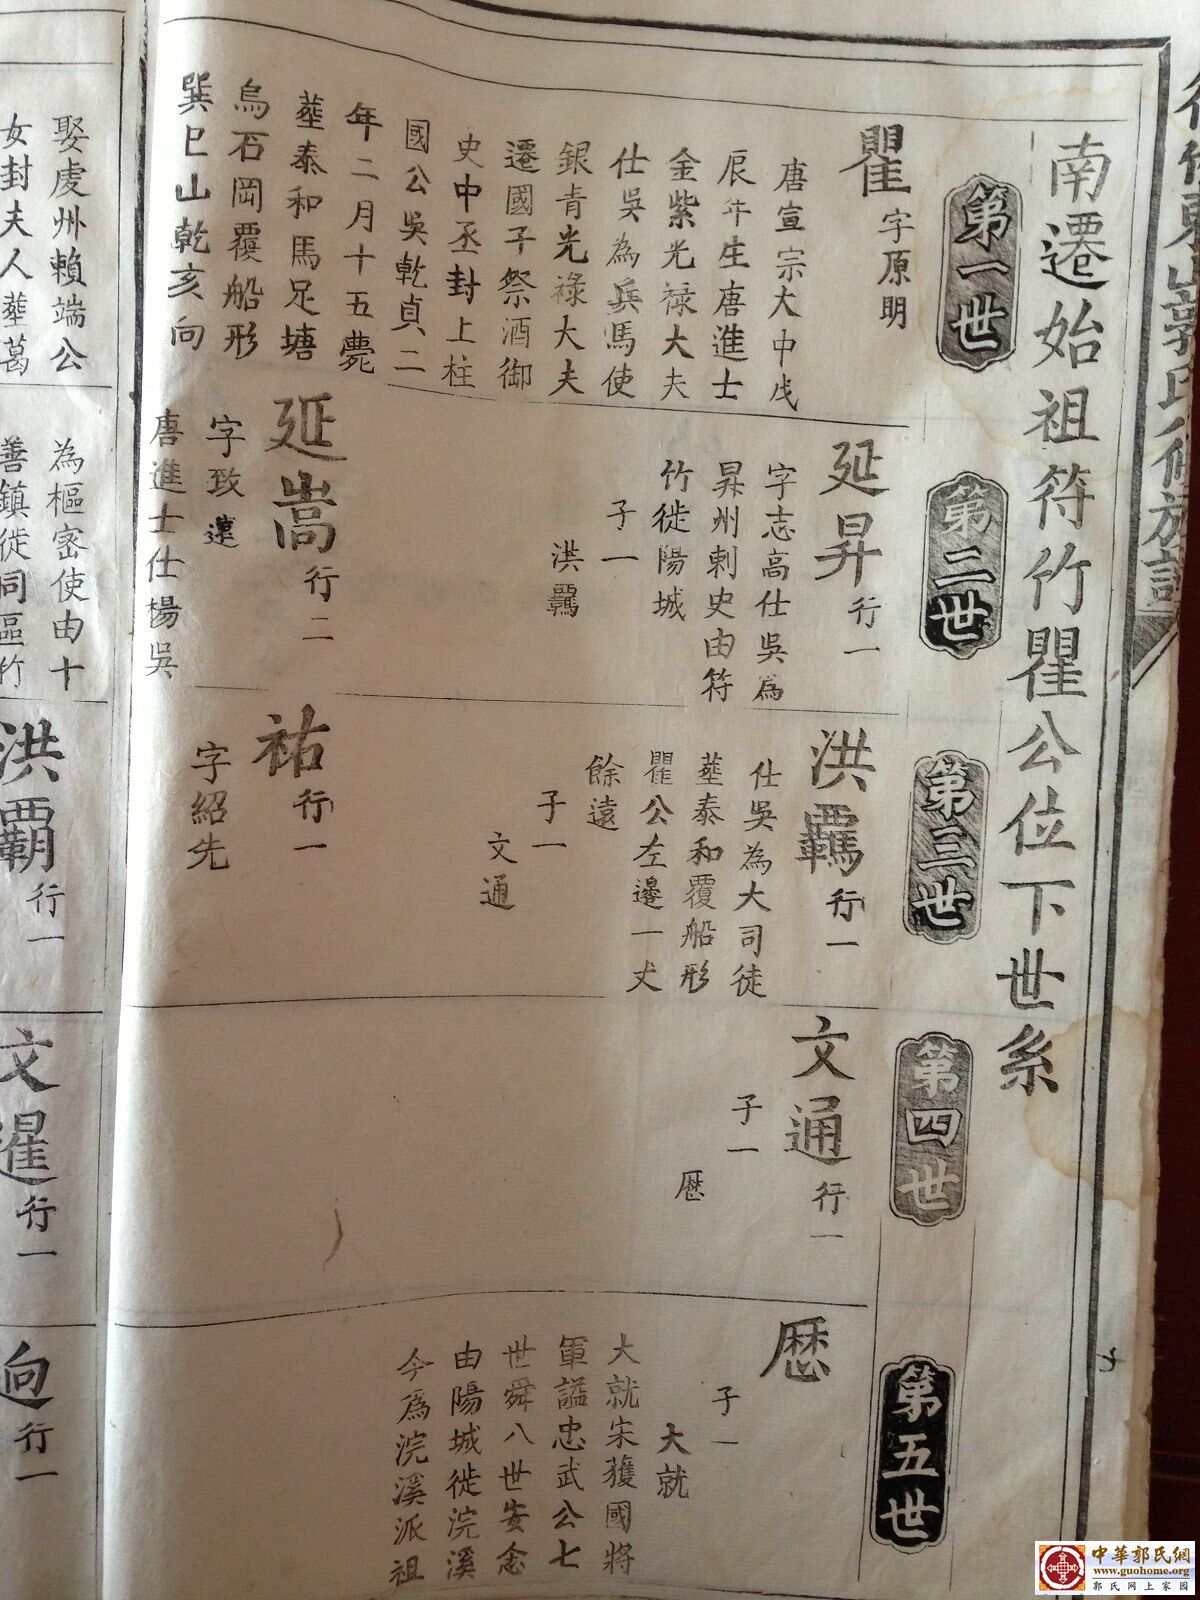 南遷始祖符竹瞿公位下世系
第一世
瞿
字原明
唐宣宗大中戊
辰年生唐進士
金紫光禄大夫
仕吳為兵馬使
銀青光祿大夫
遷國子祭酒御
史中丞封上柱
國公吳乾貞二
年二月十五薨
塟泰和馬足塘
烏石岡覆船形
巽巳山乾亥向
第二世
延昇
行一
字志高仕吳為
昇州刺史由符
竹徙陽城
子一
洪羈
延嵩
行二
字致
唐進士仕楊吳
第三世
洪羈
行一
仕吳為大司徒
塟泰和覆船形
瞿公左邊一丈
餘遠
子一
文通
祐
行一
字紹先
第四世
文通
行一
子一
厯
第五世
厯
子一
大就
大就宋獲國將
軍謚忠武公七
世舜八世安念
由陽城徙浣溪
今為浣溪派祖
娶虔州賴端公
女封夫人塟葛
為樞密使由十
善鎮徙同區竹
洪霸
行一
文暹
行一
迥
行一
中華郭氏網
www.guohome.org
郭氏网上家园